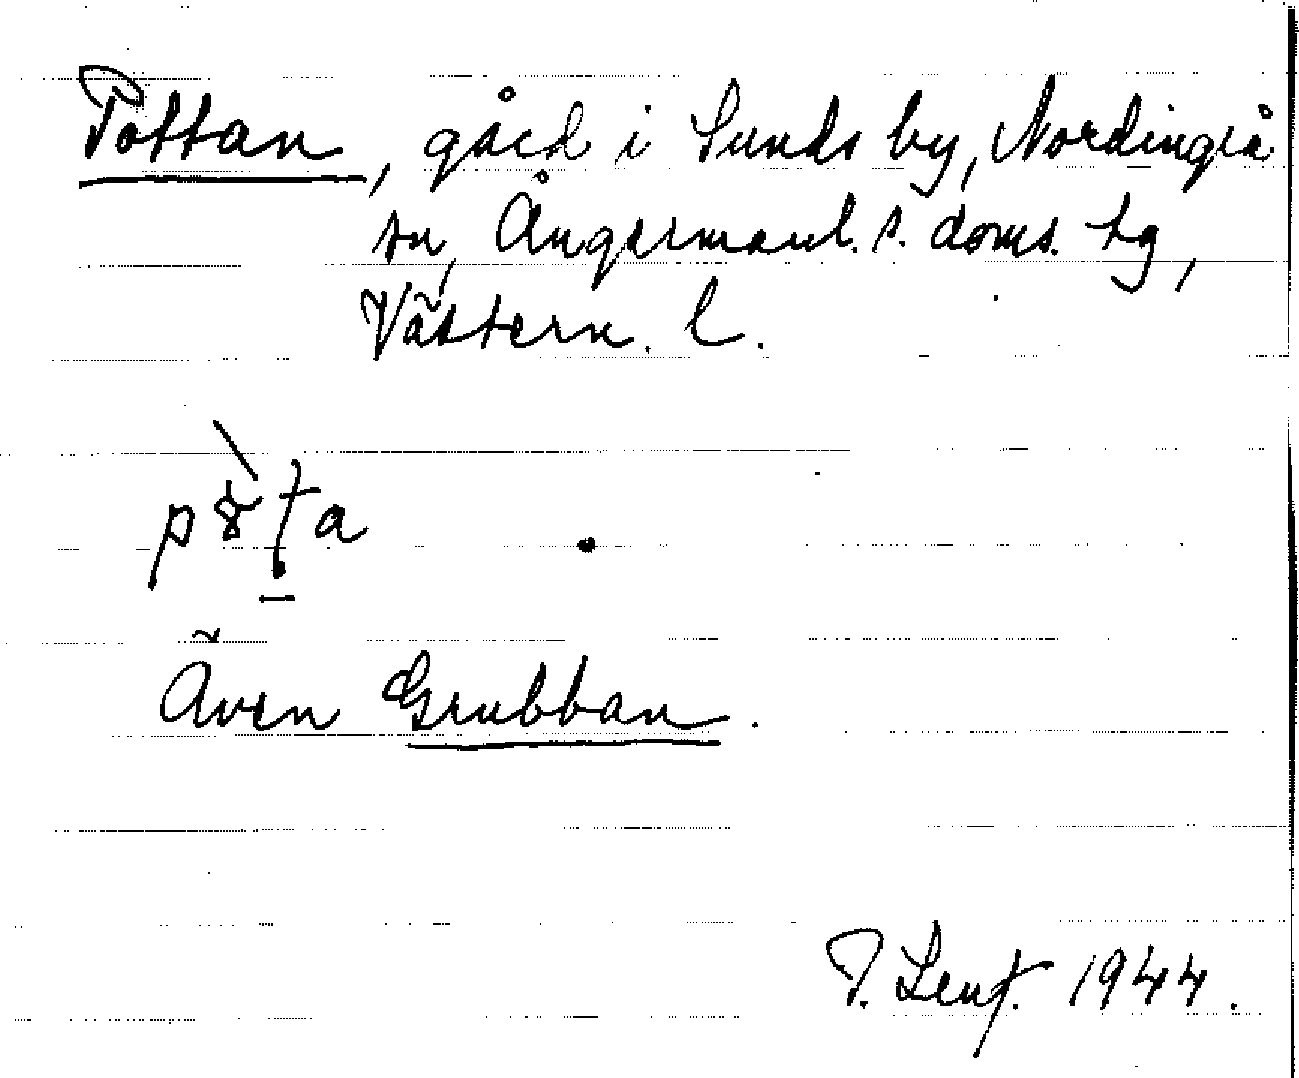 Pottan, gård i Sunds by, Nordingrå
sn, Ångermanl. s. doms. tg,
Västern. l.
Även Grubban.
1944.